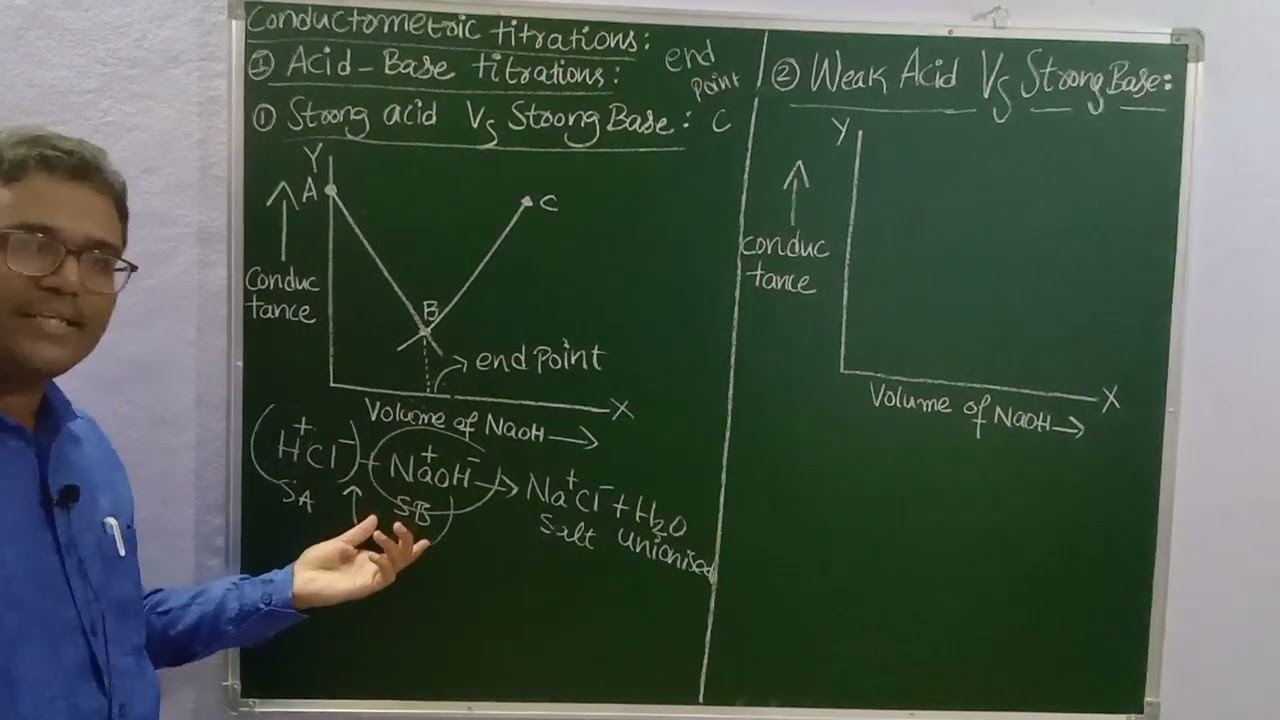 Conductometric titrations:
① Acid-Base titrations:
end
point
① Strong acid Vs Strong Base: C
Y
A
C
Conduc
tance
B
end Point
X
Volume of NaOH →
H⁺Cl⁻ + Na⁺OH⁻ → Na⁺Cl⁻ + H₂O
SA SB Salt unionised
② Weak Acid Vs Strong Base:
Y
conduc
tance
X
Volume of NaOH →